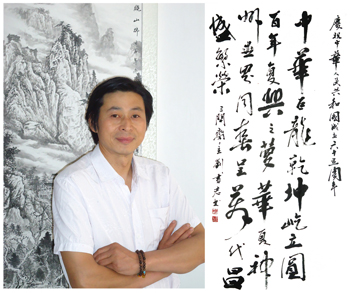 慶祝中華人民共和國成立六十周年
中華巨龍乾坤屹立圓
百年復興之夢華夏神
州同喜呈一代昌
盛繁榮
主劉書
山